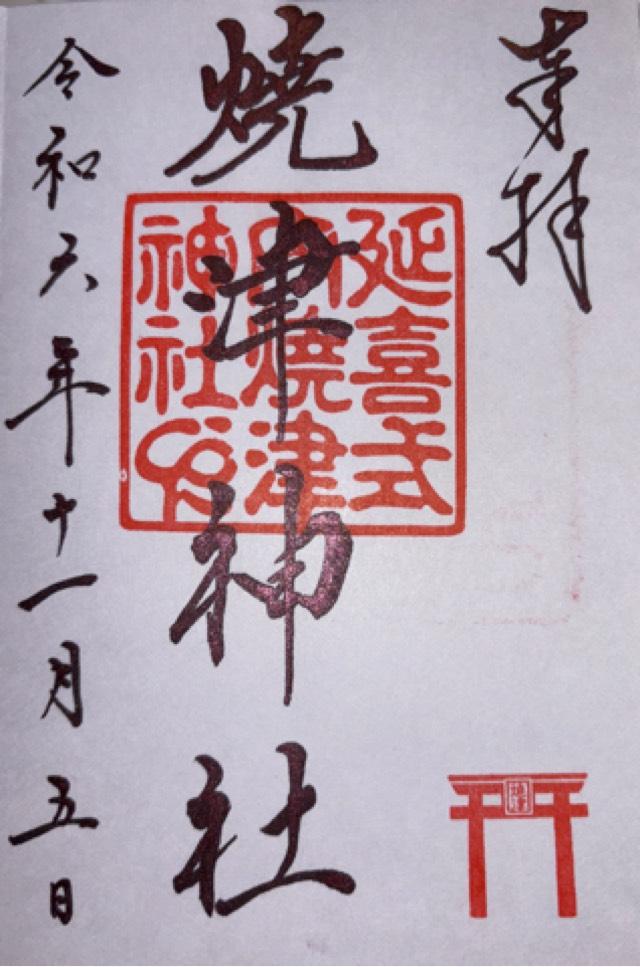 奉拝
燒津神社
延喜式
内燒津
神社印
令和六年十一月五日